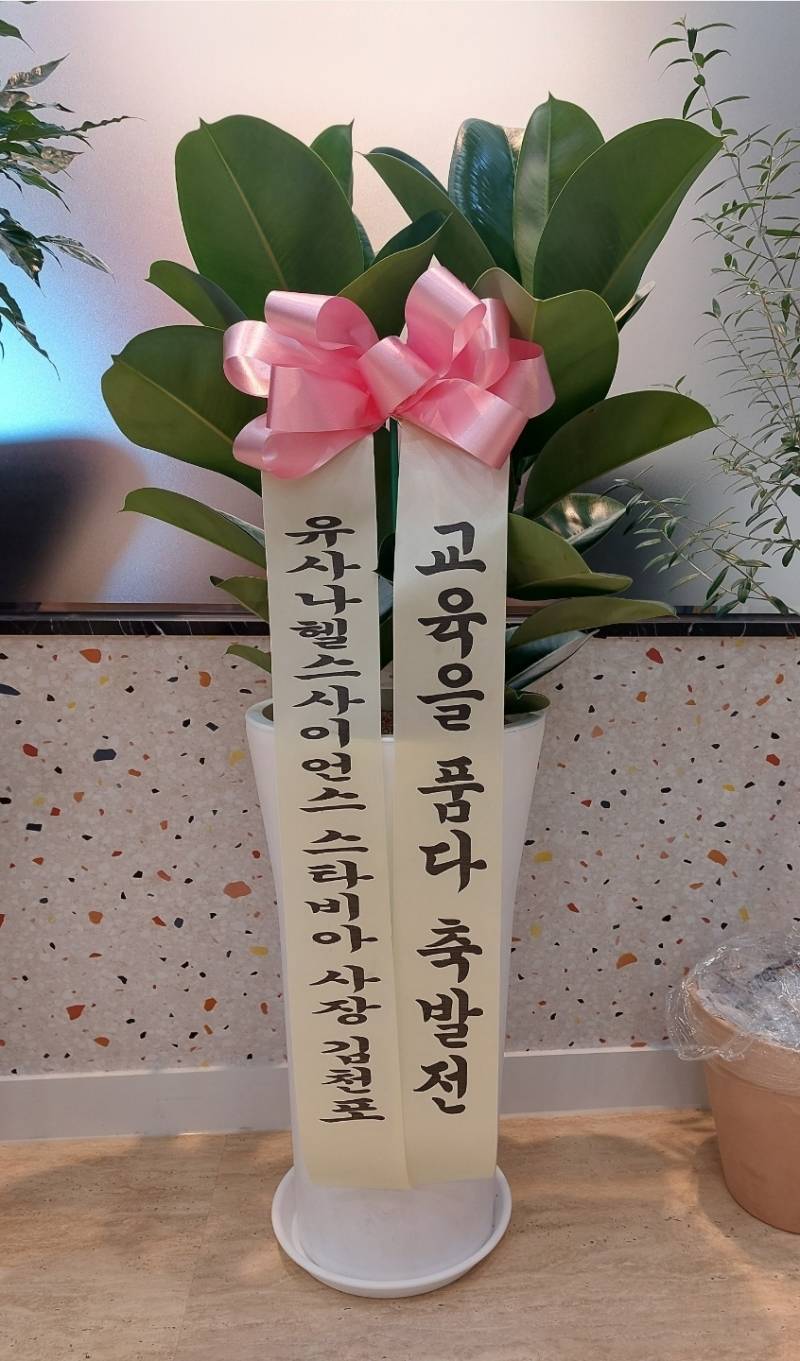 교육을 품다 축발전
유사나헬스사이언스 스타비아 사장 김천포